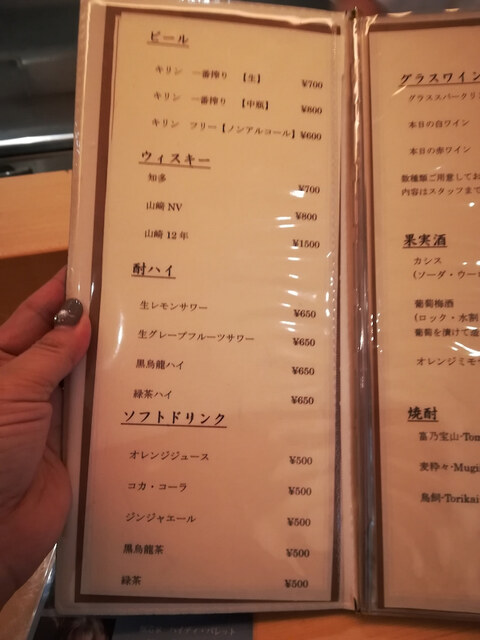 ビール
キリン 一番搾り 【生】 ¥700
キリン 一番搾り 【中瓶】 ¥800
キリン フリー【ノンアルコール】 ¥600
ウィスキー
知多 ¥700
山崎 NV ¥800
山崎 12年 ¥1500
酎ハイ
生レモンサワー ¥650
生グレープフルーツサワー ¥650
黒烏龍ハイ ¥650
緑茶ハイ ¥650
ソフトドリンク
オレンジジュース ¥500
コカ・コーラ ¥500
ジンジャエール ¥500
黒烏龍茶 ¥500
緑茶 ¥500
グラスワイン
グラススパークリ
本日の白ワイン
本日の赤ワイン
数種類ご用意してお
内容はスタッフまで
果実酒
カシス
(ソーダ・ウーロ
葡萄梅酒
(ロック・水割
葡萄を漬けて
オレンジミモ
焼酎
富乃宝山-Tom
麦粋々-Mugi
鳥飼-Torikai